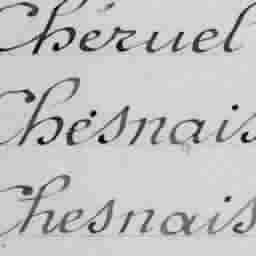 Chéruel
Chésnais
Chesnais